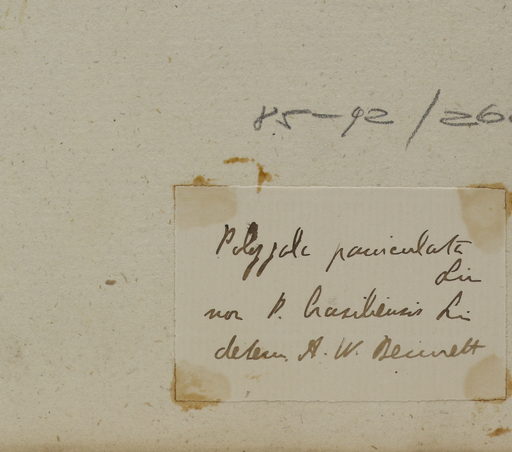 85-92/26
Polygala paniculata
Lin
non P. brasiliensis Li
determ. A. W. Bennett